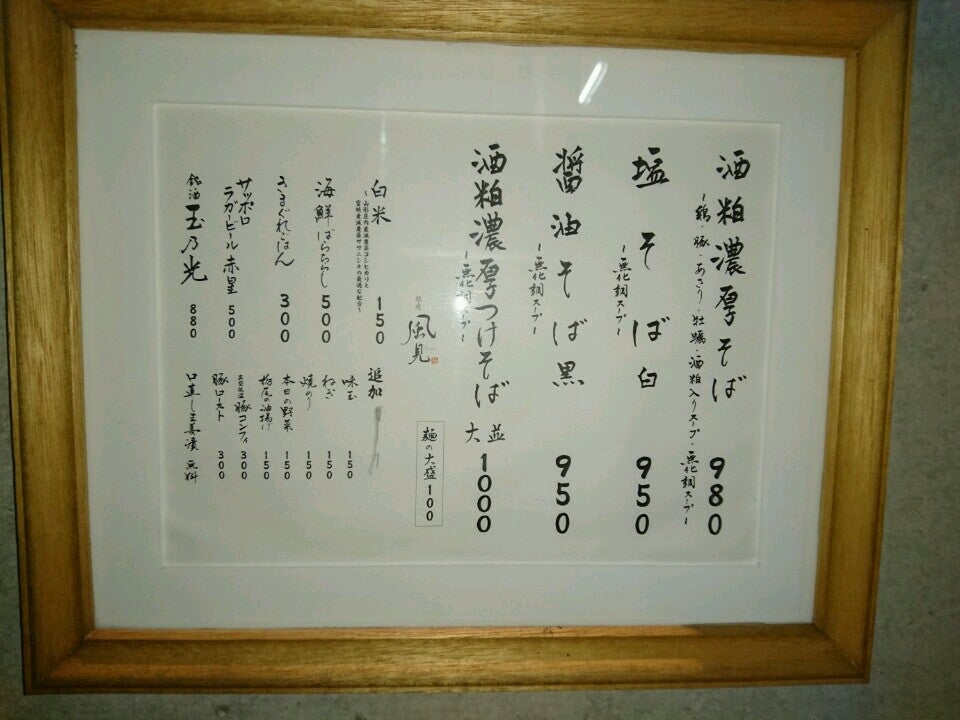 酒粕濃厚そば 980
〜鶏、豚、あさり、牡蠣、酒粕入りスープ、無化調スープ〜
塩そば 白 950
〜無化調スープ〜
醤油そば 黒 950
〜無化調スープ〜
酒粕濃厚つけそば 並大 1000
〜無化調スープ〜
麺の大盛 100
銀座
風見
白米 150
〜山形庄内産減農薬コシヒカリと
宮城産減農薬ササニシキの最適な配合〜
海鮮ばらちらし 500
きまぐれごはん 300
サッポロ
ラガービール 赤星 500
銘酒 玉乃光 880
追加
味玉 150
ねぎ 150
焼のり 150
本日の野菜 150
栃尾の油揚げ 150
豚コンフィ 300
豚ロースト 300
口直し生姜漬 無料